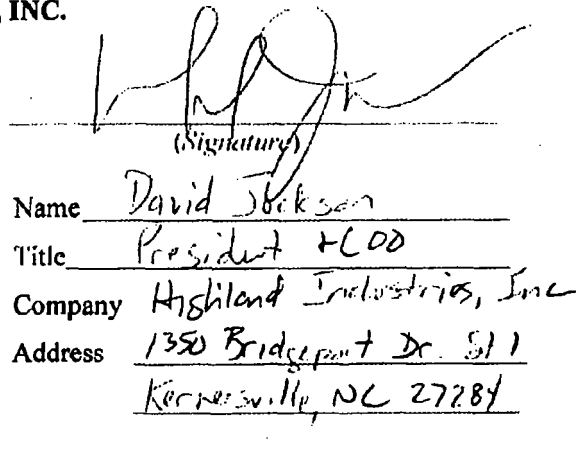 , INC.
(Signature)
Name David Jackson
Title President + COO
Company Highland Industries, Inc
Address 1350 Bridgeport Dr. St 1
Kernersville, NC 27284